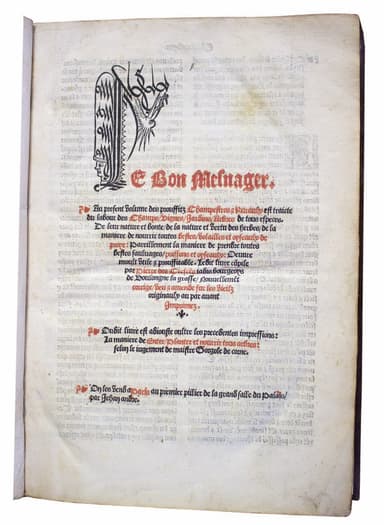 LE Bon Mesnager.
Au present volume des prouffitz Champestres & Ruraulx/ est traicte
du labour des Champs/ Vignes/ Jardins/ Arbres de tous especes.
De leur nature et bonte/ de la nature et vertu des herbes/ de la
maniere de nourrir toutes bestes/ volailles et oyseaulx de
pris: Pareillement la maniere de prendre toutes
bestes sauluages/ poissons et oyseaulx: Oeuure
moult vtile & prouffitable. Ledit liure cõpile
par Pierre des Crescẽs iadis bourgeoys
de Boulongne la grasse/ nouuellemẽt
corrige/ veu & amende sur les vieilz
originaulx au par auant
Imprimez.
Oudit liure est adiouste oultre les precedentes impressions:
La maniere de Enter Planter et nourrir tous arbres:
selon le iugement de maistre Gorgole de corne.
On les vend a Paris au premier pillier de la grand salle du Palais/
par Jehan andre.